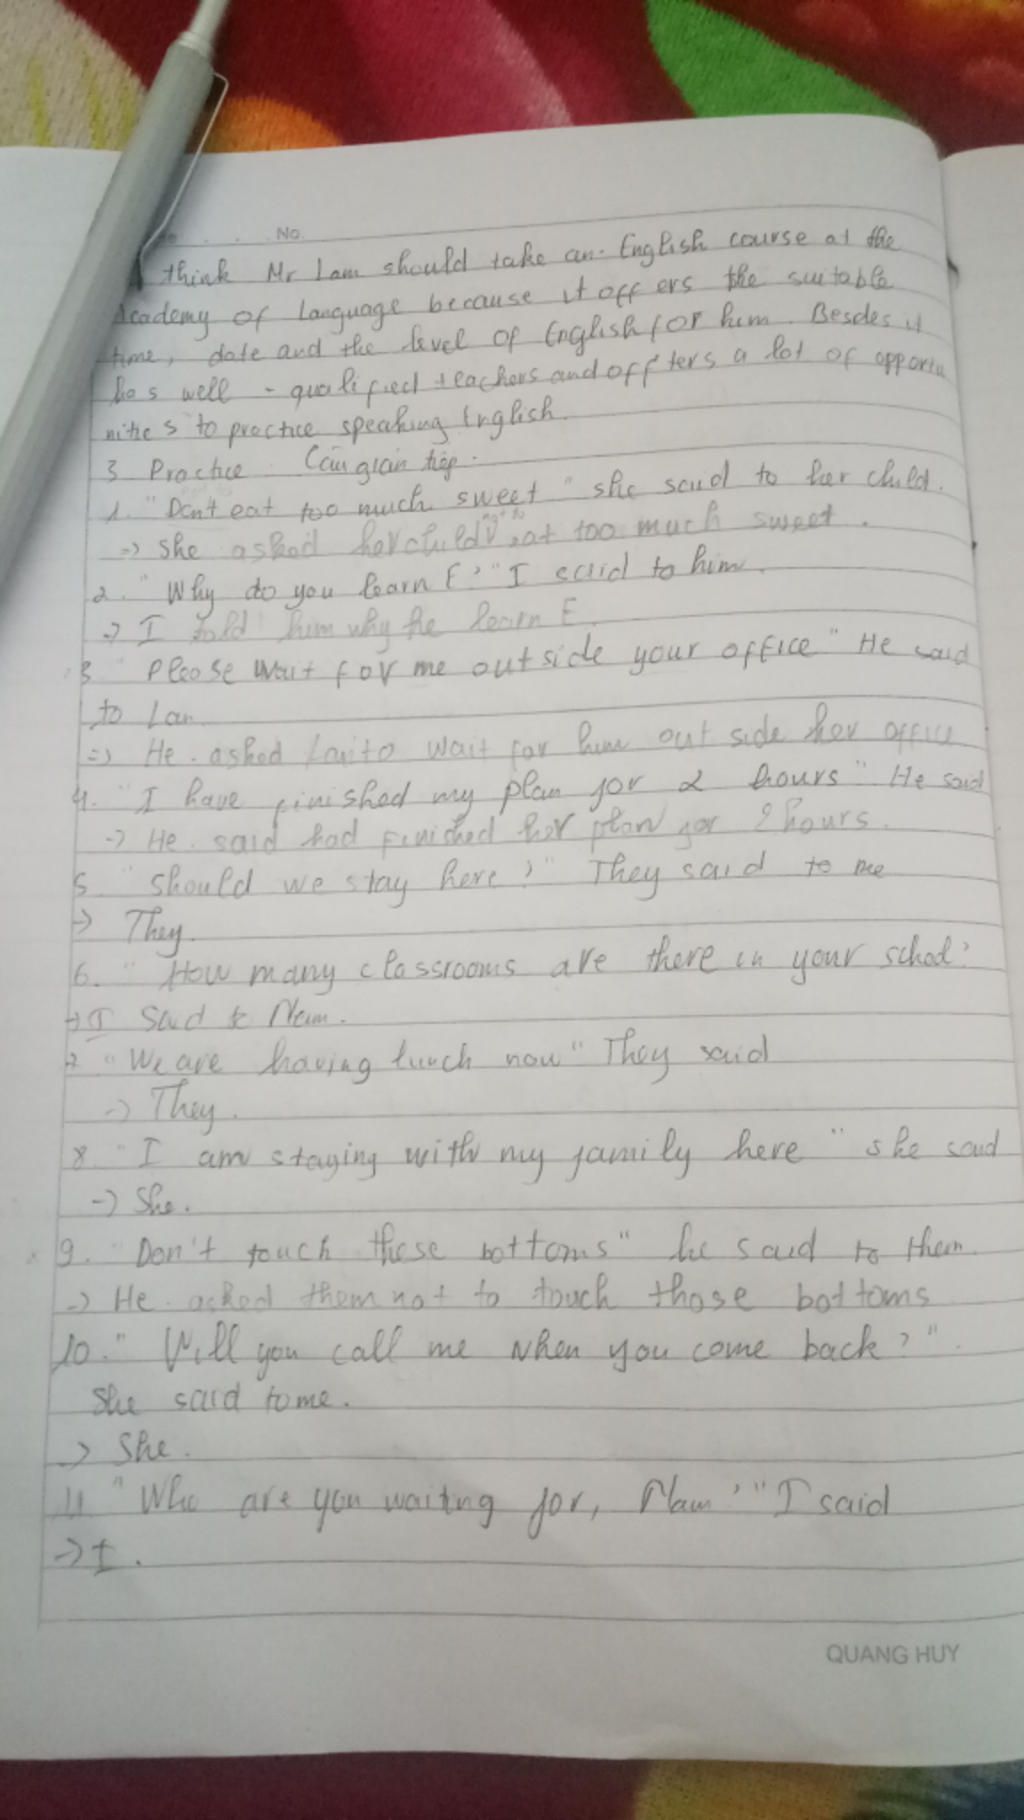 No.
think Mr Lam should take an English course at the
Academy of language because it offers the suitable
time, date and the level of English for him. Besdes it
has well - qualified teachers and offters a lot of opportu
nities to practice speaking English.
3 Practice Câu gián tiếp.
1. "Don't eat too much sweet" she said to her child.
-> She asked her child not to eat too much sweet.
2. "Why do you learn E?" I said to him.
-> I told him why he learn E.
3 "Please wait for me outside your office" He said
to Lan
=> He asked Lan to wait for him out side her office
4. "I have finished my plan for 2 hours" He said
-> He said had finished her plan for 2 hours.
5 "Should we stay here?" They said to me
-> They
6. "How many classrooms are there in your school?
-> I said to Nam.
7 "We are having lunch now" They said
-> They.
8 "I am staying with my family here" she said
-> She.
9. "Don't touch these bottoms" he said to them.
-> He asked them not to touch those bottoms
10. "Will you call me when you come back?".
She said to me.
-> She.
11 "Who are you waiting for, Nam?" I said
-> I.
QUANG HUY